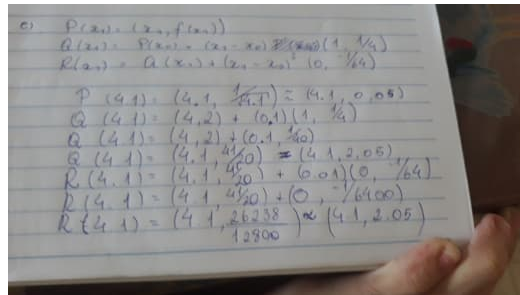 c) P(x₁) = (x₁, f(x₁))
Q(x₁) = P(x₀) + (x₁ - x₀) (1, 1/4)
R(x₁) = Q(x₁) + (x₁ - x₀)² (0, -1/64)
P(4.1) = (4.1, ) ≈ (4.1, 0,05)
Q(4.1) = (4,2) + (0.1)(1, 1/4)
Q(4.1) = (4,2) + (0.1, 1/40)
Q(4.1) = (4.1, 41/20) ≈ (4.1, 2.05)
R(4.1) = (4.1, 41/20) + (0.01)(0, -1/64)
R(4.1) = (4.1, 41/20) + (0, -1/6400)
R(4.1) = (4.1, 26238/12800) ≈ (4.1, 2.05)